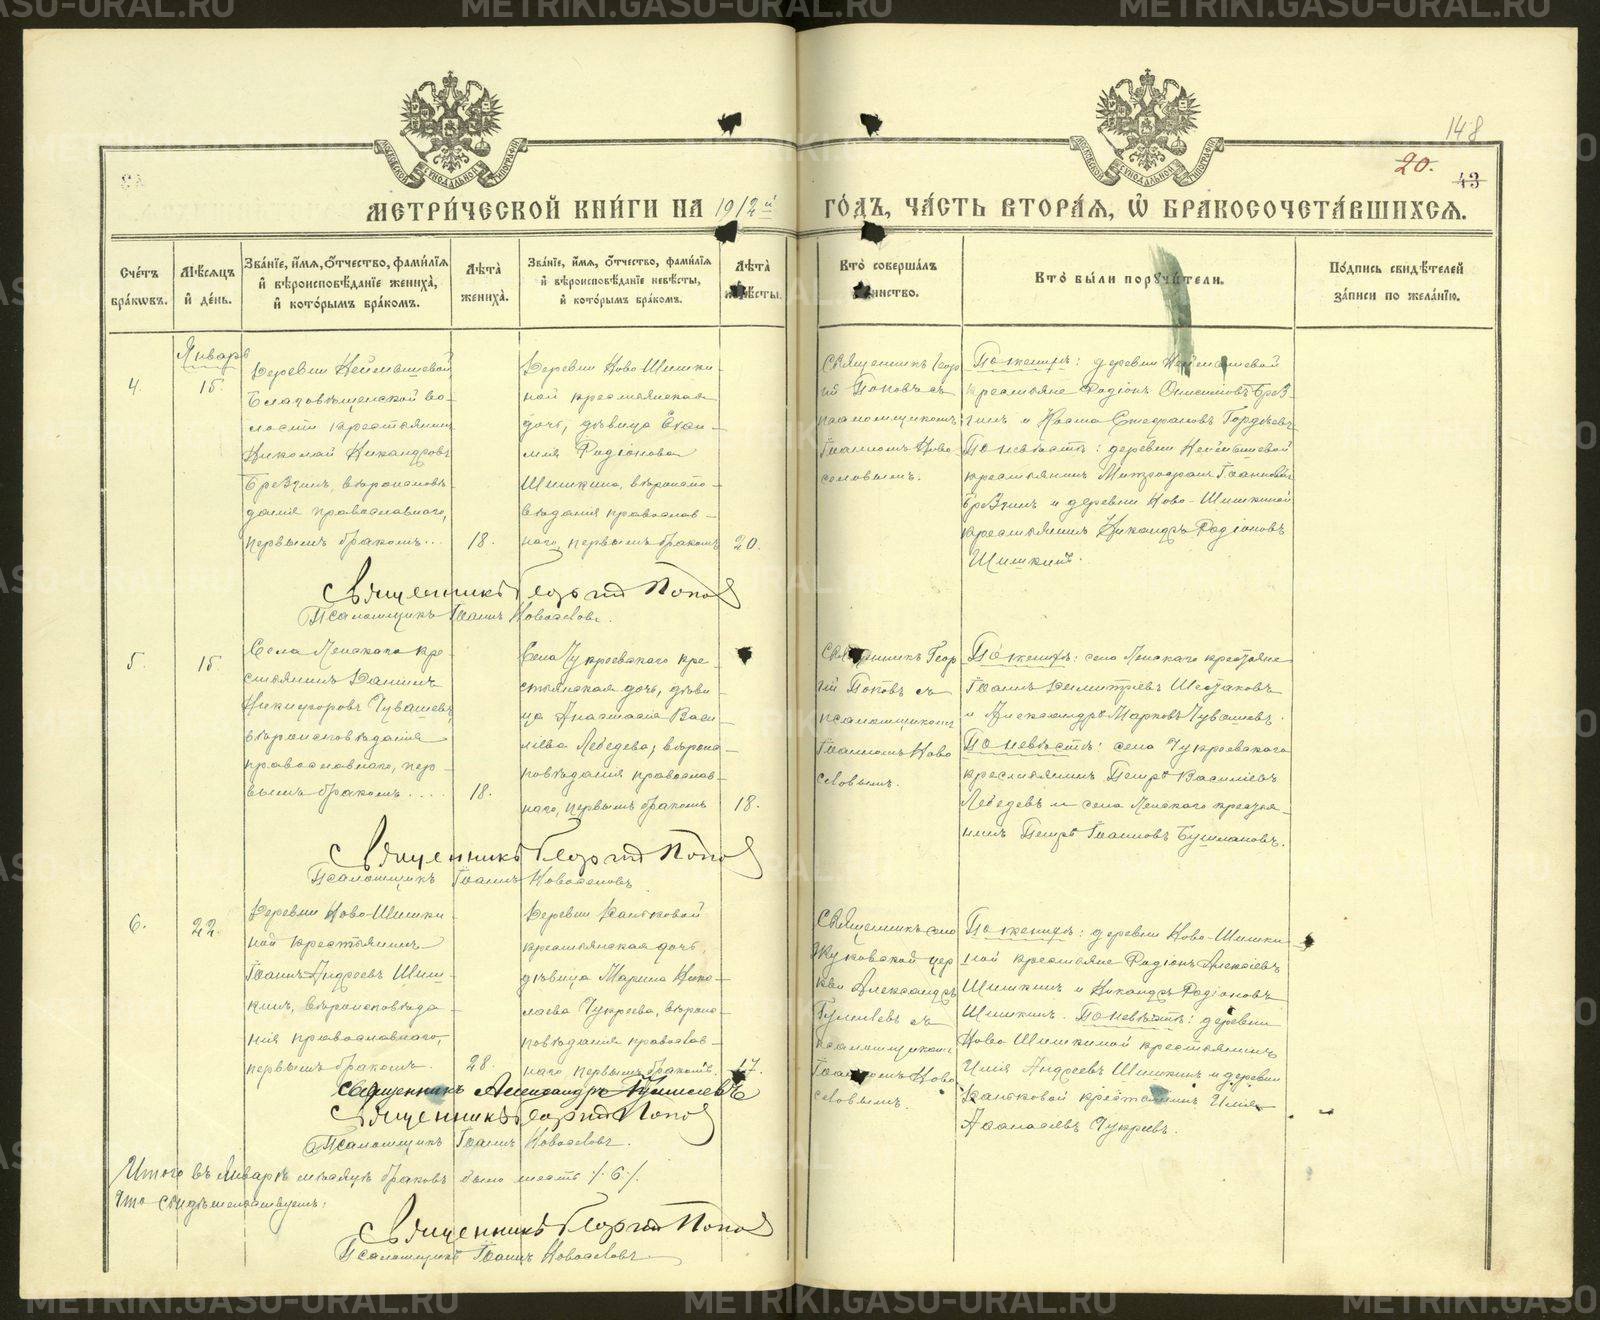 148
20.
43
МЕТРИ́ЧЕСКОЙ КНИ́ГИ НА 1912й ГО́ДЪ, ЧА́СТЬ ВТОРА́Я, Ѡ БРАКОСОЧЕТА́ВШИХСЯ.
Сче́тъ бра́кѡвъ.
Мѣ́сяцъ и́ де́нь.
Зва́нїе, и́мя, о́тчество, фами́лїя и́ вѣроисповѣ́данїе жениха̀, и́ кото́рымъ бра́комъ.
Лѣ́та жениха̀.
Зва́нїе, и́мя, о́тчество, фами́лїя и́ вѣроисповѣ́данїе невѣ́сты, и́ кото́рымъ бра́комъ.
Лѣ́та невѣ́сты.
Кто̀ соверша́лъ таинство.
Кто̀ бы́ли поручи́тели.
По́дпись свидѣ́телей за́писи по жела́нїю.
Январь
4.
15.
Деревни Кеймышевой,
Благовѣщенской во-
лости крестьянинъ
Николай Никандровъ
Брезгинъ, вѣроисповѣ-
данія православнаго,
первымъ бракомъ...
18.
Деревни Ново-Шишки-
ной крестьянская
дочь, дѣвица
Родіонова
Шишкина, вѣроиспо-
вѣданія православ-
наго, первымъ бракомъ
20.
Священникъ Геор-
гій Поповъ съ
псаломщикомъ
Іоанномъ Ново-
селовымъ.
По женихѣ: деревни Кеймышевой
крестьяне Родіонъ Онисимовъ Брез-
гинъ и Стефановъ Гордѣевъ
По невѣстѣ: деревни Кеймышевой
крестьянинъ Митрофанъ Іоанновъ
Брезгинъ и деревни Ново-Шишкиной
крестьянинъ Никандръ Родіоновъ
Шишкинъ.
Священникъ Георгій Поповъ
Псаломщикъ Іоаннъ Новоселовъ.
5.
15.
Села Ленскаго кре-
стьянинъ Даніилъ
Никифоровъ Чувашевъ,
вѣроисповѣданія
православнаго, пер-
вымъ бракомъ....
18.
Села Чукреевскаго кре-
стьянская дочь, дѣви-
ца Анастасія Васи-
ліева Лебедева, вѣроис-
повѣданія православ-
наго, первымъ бракомъ
18.
Священникъ Геор-
гій Поповъ съ
псаломщикомъ
Іоанномъ Ново-
селовымъ.
По женихѣ: села Ленскаго крестьяне
Іоаннъ Димитріевъ Шестаковъ
и Александръ Марковъ Чувашевъ.
По невѣстѣ: села Чукреевскаго
крестьянинъ Петръ Василіевъ
Лебедевъ и села Ленскаго крестья-
нинъ Петръ Іоанновъ Бушлановъ.
Священникъ Георгій Поповъ
Псаломщикъ Іоаннъ Новоселовъ
6.
22.
Деревни Ново-Шишки-
ной крестьянинъ
Іоаннъ Андреевъ Шиш-
кинъ, вѣроисповѣда-
нія православнаго,
первымъ бракомъ.
28.
Деревни Ханьковой
крестьянская дочь,
дѣвица Марина Нико-
лаева Чукреева, вѣроис-
повѣданія православ-
наго первымъ бракомъ.
17.
Священникъ села
Жуковской цер-
кви Александръ
съ
псаломщикомъ
Іоанномъ Ново-
селовымъ.
По женихѣ: деревни Ново-Шишки-
ной крестьяне Родіонъ Алексіевъ
Шишкинъ и Никандръ Родіоновъ
Шишкинъ. По невѣстѣ: деревни
Ново Шишкиной крестьянинъ
Илія Андреевъ Шишкинъ и деревни
Ханьковой крестьянинъ Илія
Аѳанасіевъ Чукреевъ.
Священникъ Александръ
Священникъ Георгій Поповъ
Псаломщикъ Іоаннъ Новоселовъ.
Итого въ Январѣ мѣсяцѣ браковъ было шесть /6/.
Что свидѣтельствуемъ:
Священникъ Георгій Поповъ
Псаломщикъ Іоаннъ Новоселовъ
METRIKI.GASU-URAL.RU